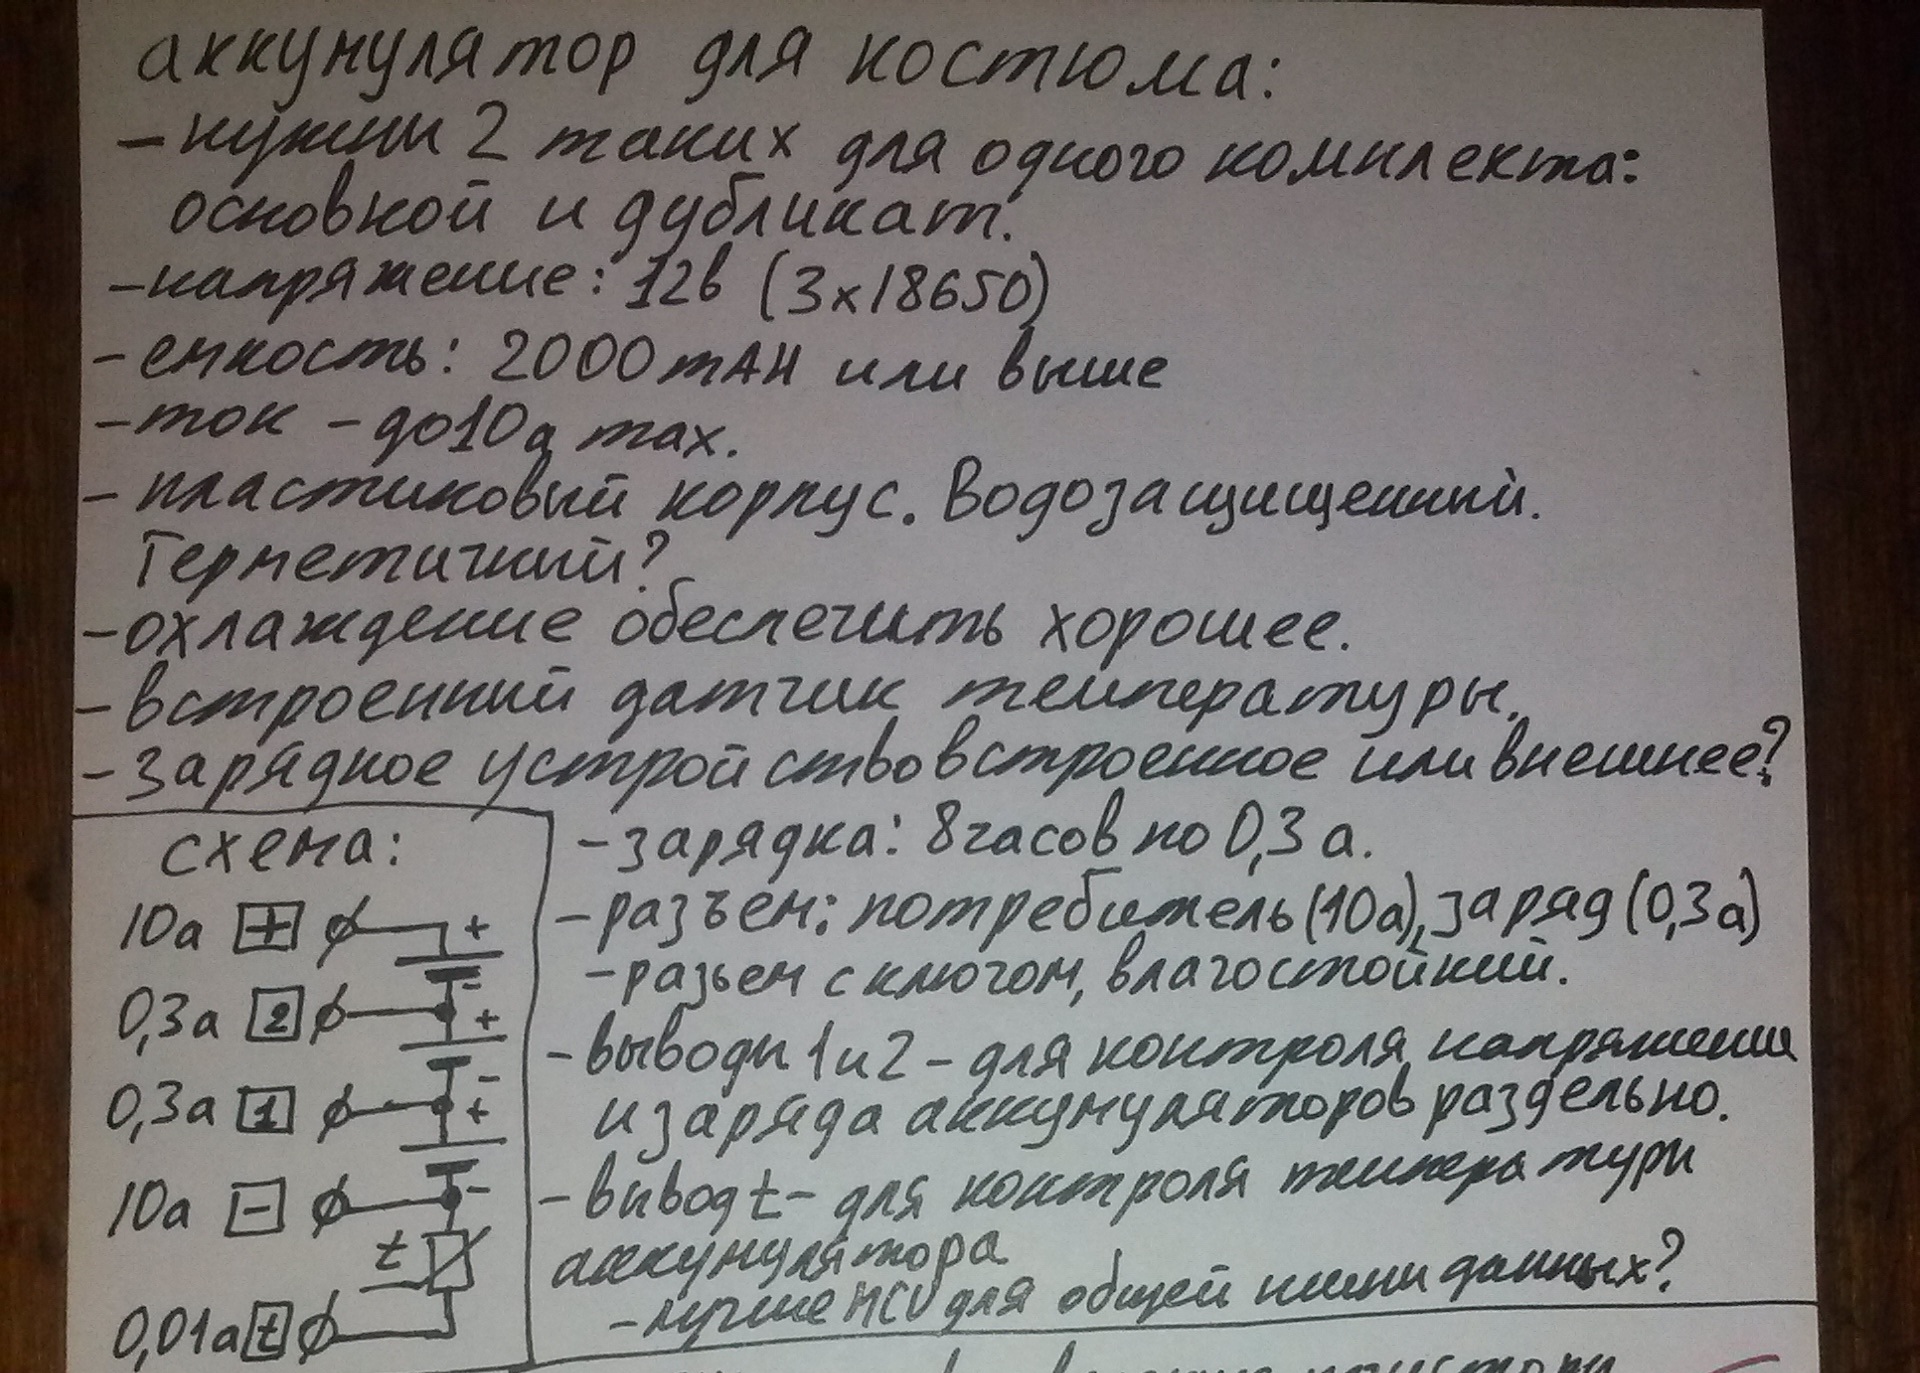 аккумулятор для костюма:
- нужны 2 таких для одного комплекта:
основной и дубликат.
- напряжение: 12в (3x18650)
- емкость: 2000mAH или выше
- ток - до 10а max.
- пластиковый корпус. Водозащищенный.
Герметичный?
- охлаждение обеспечить хорошее.
- встроенный датчик температуры.
- зарядное устройство встроенное или внешнее?
схема:
10а + +
-
0,3а 2 +
-
0,3а 1 +
10а - -
t
0,01а t
- зарядка: 8 часов по 0,3а.
- разъем: потребитель (10а), заряд (0,3а)
- разьем с ключом, влагостойкий.
- выводы 1 и 2 - для контроля напряжения
и заряда аккумуляторов раздельно.
- вывод t - для контроля температуры
аккумулятора
- лучше MCU для общей шины данных?